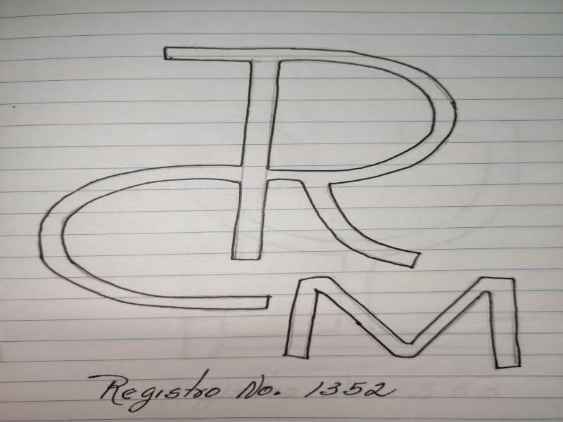 R
C
M
Registro No. 1352